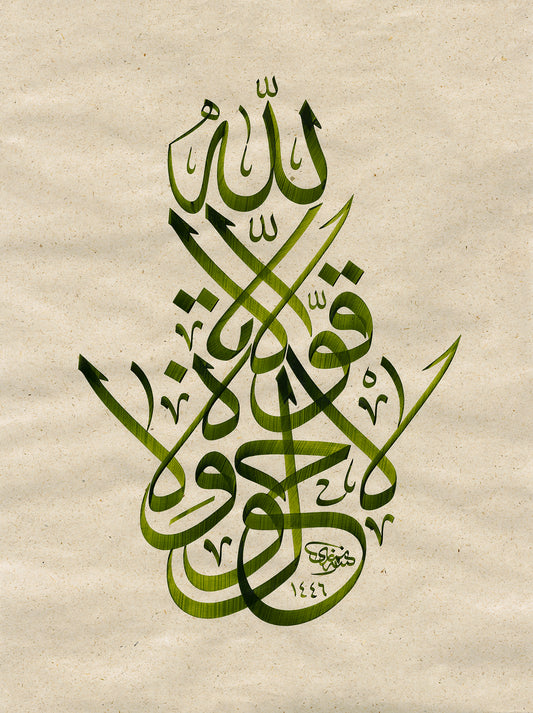 لا حول ولا قوة إلا بالله
١٤٤٦